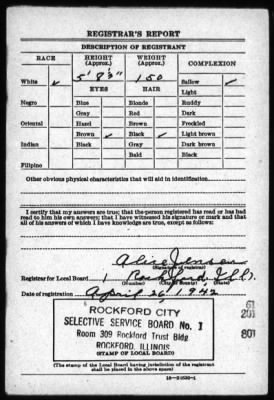 REGISTRAR'S REPORT
DESCRIPTION OF REGISTRANT
RACE HEIGHT (Approx.) WEIGHT (Approx.) COMPLEXION
White ✓ 5' 8 150 Sallow ✓
EYES HAIR Light
Negro Blue Blonde Ruddy
Gray Red Dark
Oriental Hazel Brown Freckled
Brown ✓ Black ✓ Light brown
Indian Black Gray Dark brown
Bald Black
Filipino
Other obvious physical characteristics that will aid in identification
I certify that my answers are true; that the person registered has read or has had
read to him his own answers; that I have witnessed his signature or mark and that
all of his answers of which I have knowledge are true, except as follows:
Alice Jensen
(Signature of registrar)
Registrar for Local Board 1 Rockford Ill.
(Number) (City or county) (State)
Date of registration April 26, 1942
ROCKFORD CITY
SELECTIVE SERVICE BOARD No. 1
Room 309 Rockford Trust Bldg
ROCKFORD, ILLINOIS
(STAMP OF LOCAL BOARD)
61
201
801
(The stamp of the Local Board having jurisdiction of the registrant
shall be placed in the above space)